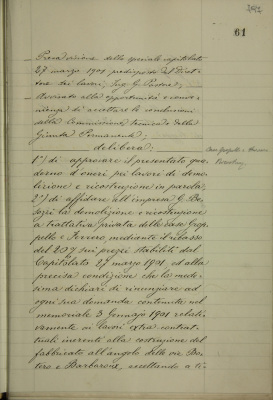 61
Presa visione dello speciale capitolato
27 marzo 1901 predisposto dal Diret-
tore dei lavori, Ing. G.
alla opportunità e conve-
nienza di accettare le conclusioni
della Commissione tecnica e della
Giunta Permanente;
delibera:
1°) di approvare il presentato qua-
derno d'oneri pei lavori di demo-
lizione e ricostruzione in parola;
2°) di affidare all'impresa G. Bo-
la demolizione e ricostruzione
a trattativa privata delle case
e mediante il ribasso
del 20% sui prezzi stabiliti dal
Capitolato 27 marzo 1901 ed alla
precisa condizione che la mede-
sima dichiari di rinunziare ad
ogni sua domanda contenuta nel
memoriale 3 Gennajo 1901 relati-
vamente ai lavori extra contrat-
tuali inerenti alla costruzione del
fabbricato all'angolo delle vie Bo-
tero e Barbaroux, eccettuando a ti-